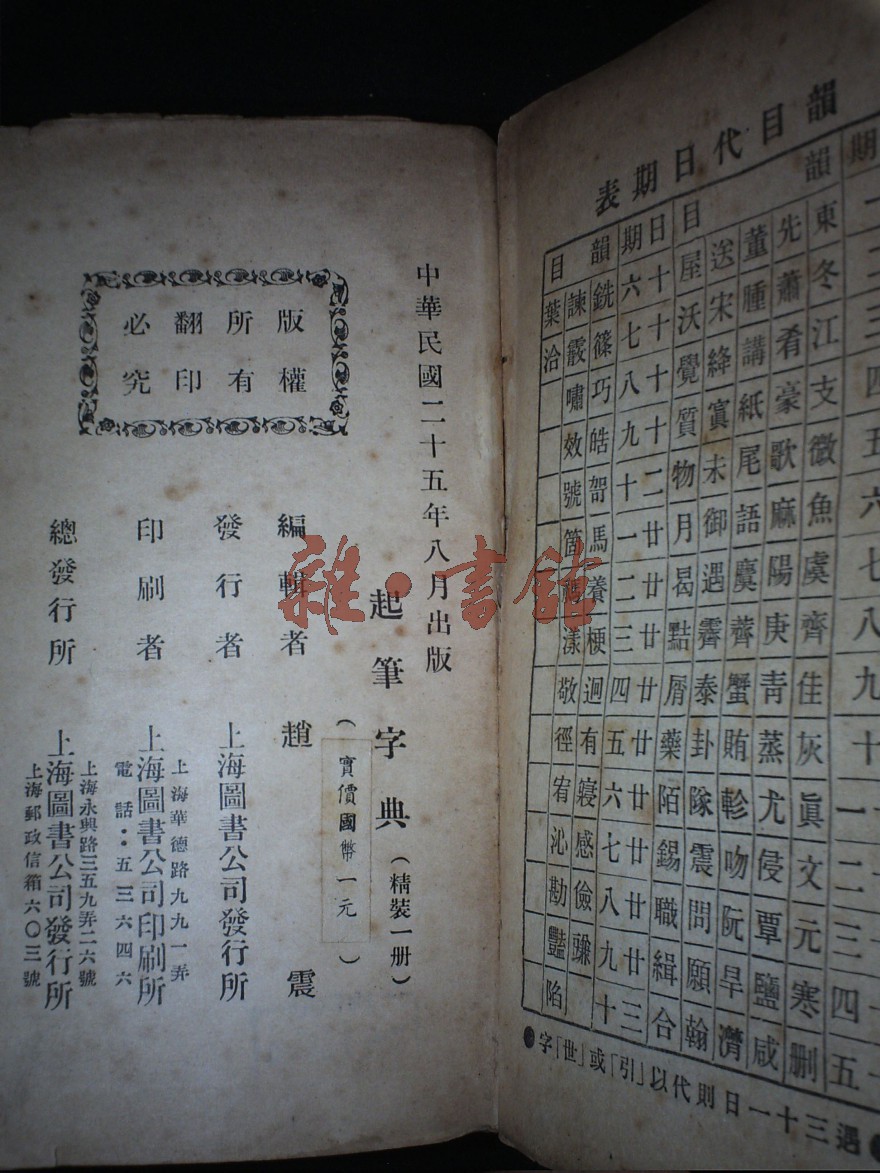 韻目代日期表
韻目
期一二三四五六七八九十一二三四五
東冬江支微魚虞齊佳灰眞文元寒刪
先蕭肴豪歌麻陽庚青蒸尤侵覃鹽咸
董腫講紙尾語麌薺蟹賄軫吻阮旱潸
送宋絳寘未御遇霽泰卦隊震問願翰
屋沃覺質物月曷黠屑藥陌錫職緝合
日期
十六
十七
十八
十九
二十
廿一
廿二
廿三
廿四
廿五
廿六
廿七
廿八
廿九
三十
韻目
銑篠巧皓哿馬養梗迥有寢感儉豏
諫霰嘯效號箇禡漾敬徑宥沁勘豔陷
葉洽
●遇三十一日則代以「引」或「世」字●
中華民國二十五年八月出版
起筆字典(精裝一册)
(實價國幣一元)
版權
所有
翻印
必究
編輯者 趙震
發行者 上海圖書公司發行所
上海華德路九九一弄
印刷者 上海圖書公司印刷所
電話：五三六四六
上海永興路三五九弄二六號
總發行所 上海圖書公司發行所
上海郵政信箱六〇三號
雜·書館